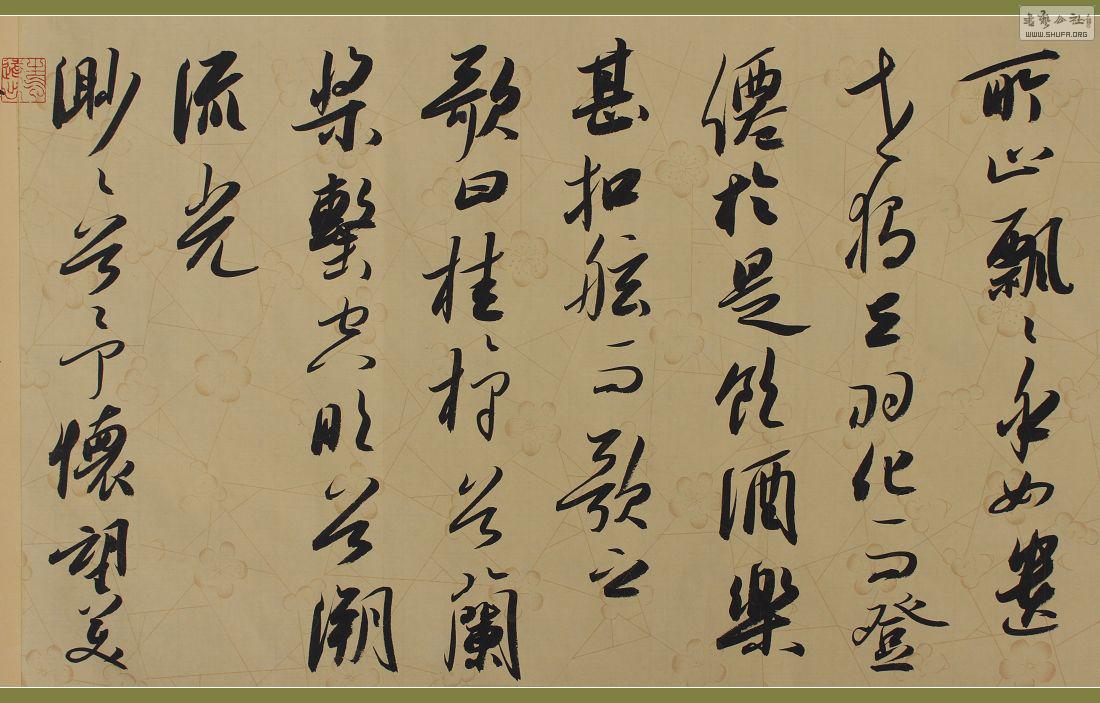 所止飄〻乎如遺
世獨立羽化而登
僊於是飲酒樂
甚扣舷而歌之
歌曰桂棹兮蘭
槳擊空明兮溯
流光
渺〻兮予懷望美
书艺公社
WWW.SHUFA.ORG